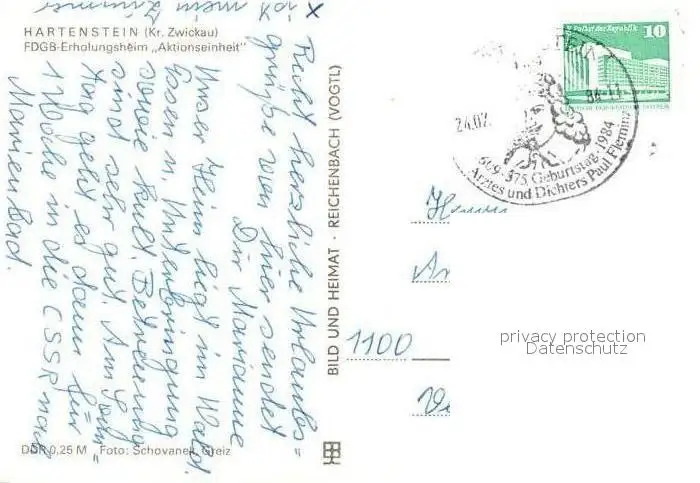 x
ist mein Zimmer
HARTENSTEIN (Kr. Zwickau)
FDGB-Erholungsheim „Aktionseinheit"
Recht herzliche Urlaubs-
grüße von hier sendet
Dir Marianne
Unser Heim liegt im Wald.
Essen u. Unterbringung
sowie kult. Betreuung
sind sehr gut. Am
Tag geht es dann für
1 Woche in die CSSR nach
Marienbad.
DDR 0,25 M Foto: Schovanek, Greiz
BILD UND HEIMAT · REICHENBACH (VOGTL)
Palast der Republik
10
24.02.
84-11
609-375. Geburtstag 1984
Arztes und Dichters Paul Fleming
1100
privacy protection
Datenschutz